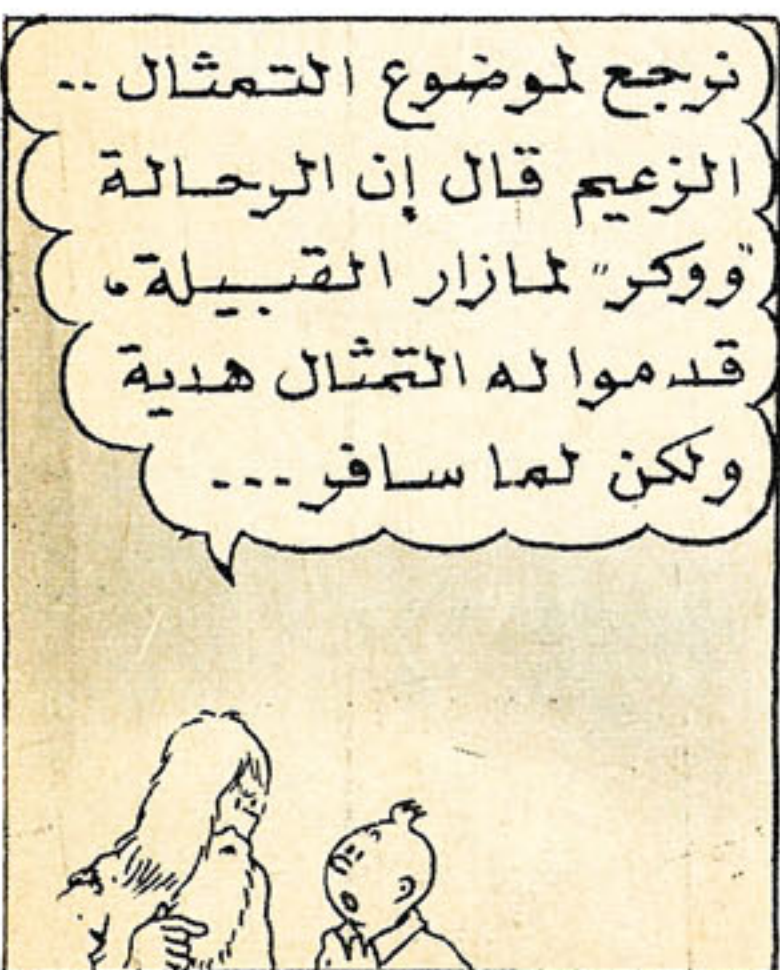 نرجع لموضوع التمثال ..
الزعيم قال إن الرحالة
"ووكر" لمازار القبيلة،
قدموا له التمثال هدية
ولكن لما سافر ...